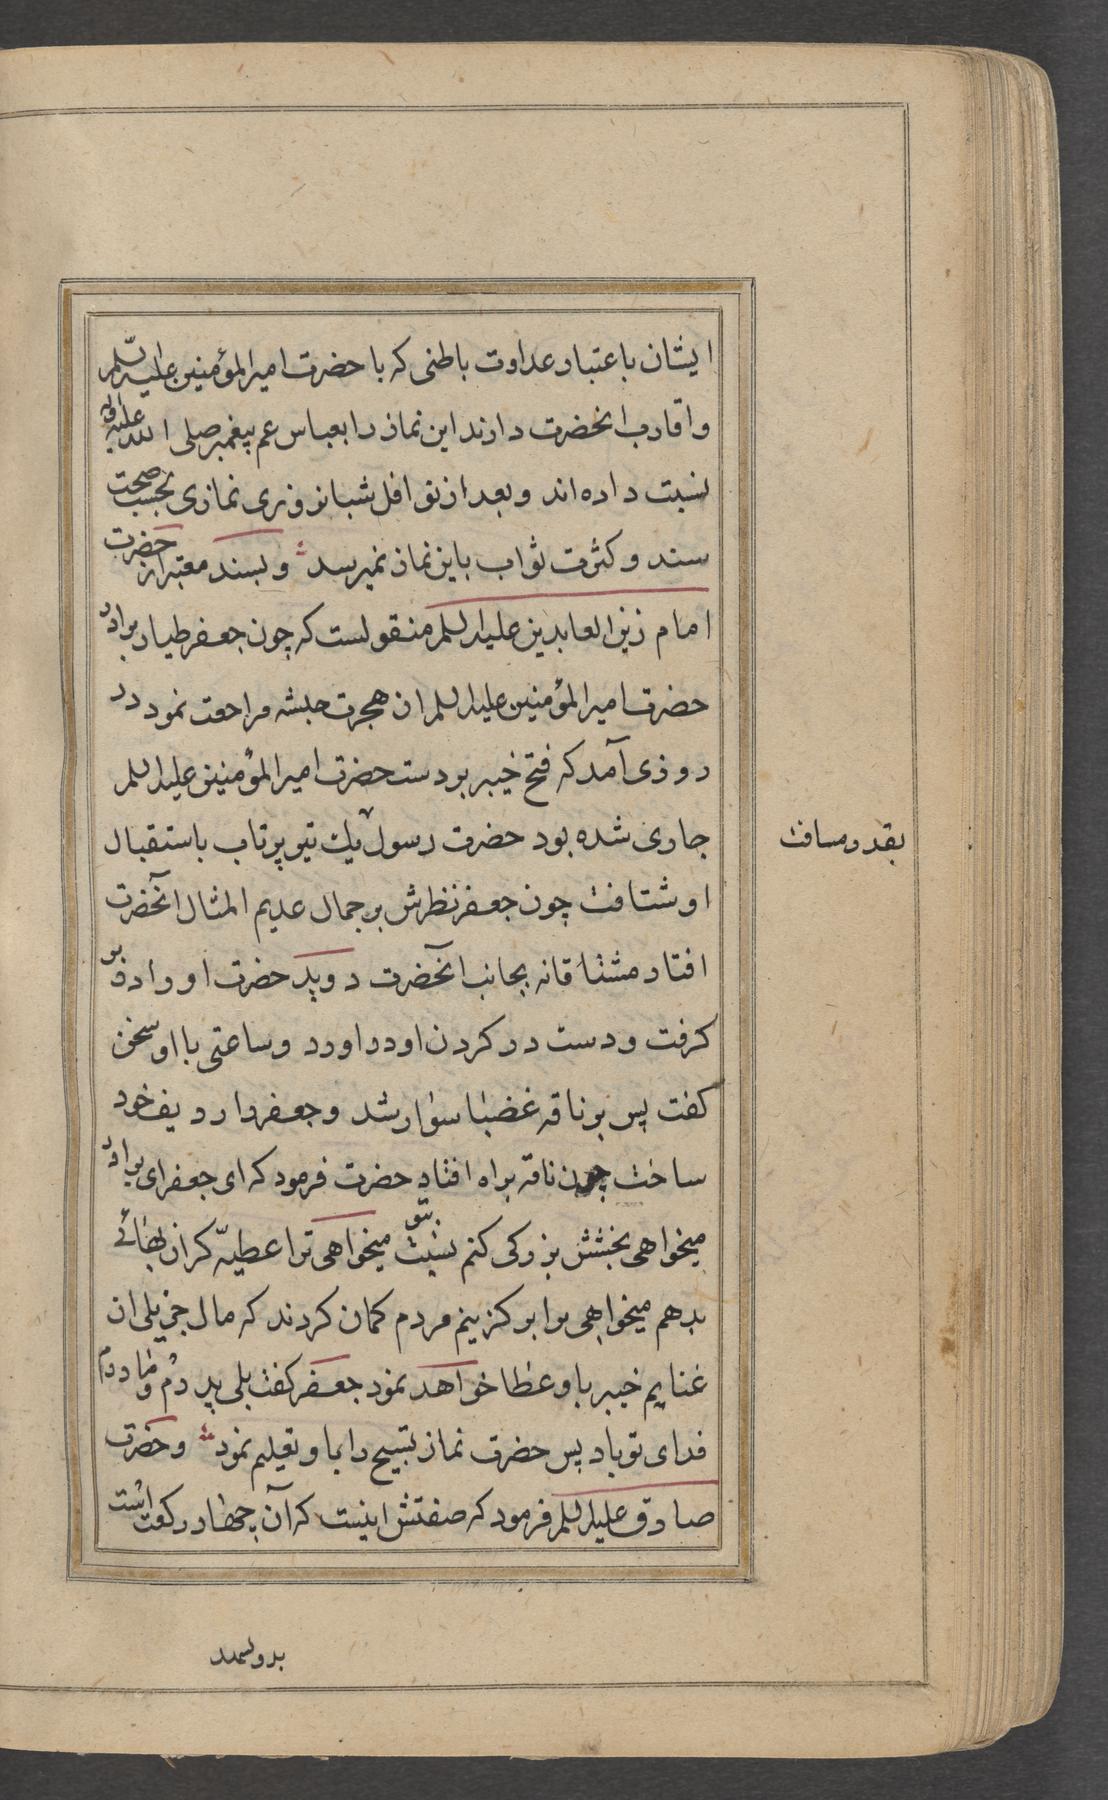 ایشان باعتبار عداوت باطنی که با حضرت امیرالمؤمنین علیه السلم
و اقارب انحضرت دارند این نماز را بعباس عم پیغمبر صلی الله علیه و اله
نسبت داده اند و بعد از نوافل شبانروزی نمازی بحسب صحت
سند و کثرت ثواب باین نماز نمیرسد و بسند معتبر از حضرت
امام زین العابدین علیه السلم منقولست که چون جعفر طیار برادر
حضرت امیرالمؤمنین علیه السلم از هجرت حبشه مراجعت نمود در
روزی آمد که فتح خیبر بر دست حضرت امیرالمؤمنین علیه السلم
جاری شده بود حضرت رسول یک تیر پرتاب باستقبال
بقدر مسافت
او شتافت چون جعفر نظرش بر جمال عدیم المثال آنحضرت
افتاد مشتاقانه بجانب آنحضرت دوید حضرت او را در بر
کرفت و دست در کردن او در اورد و ساعتی با او سخن
کفت پس بر ناقه غضبا سوار شد و جعفر را ردیف خود
ساخت چون ناقه براه افتاد حضرت فرمود که ای جعفر ای برادر
میخواهی بخشش بزرکی کنم نسبت بتو میخواهی ترا عطیّه کرانبهائے
بدهم میخواهی ترا بر کزینم مردم کمان کردند که مال جزیلی از
غنایم خیبر باو عطا خواهد نمود جعفر کفت بلی پدرم و مادرم
فدای تو باد پس حضرت نماز تسبیح را باو تعلیم نمود و حضرت
صادق علیه السلم فرمود که صفتش اینست که آن چهار رکعت است